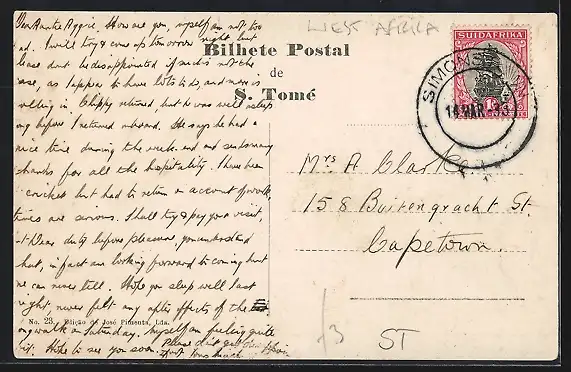 WEST AFRICA
Bilhete Postal
de
S. Tomé
SUIDAFRIKA
SIMONS
14 MAR 33
Dear Auntie Aggie. How are you, myself am not too
bad. I will try & come up tomorrow night but
please dont be disappointed if such is not the
case, as I appear to have lots to do, and more is
rolling in Chippy returned but he was well asleep
before I returned inboard. He says he had a
nice time during the week-end and sends many
thanks for all the hospitality. I have been
cricket but had to return on account of work,
times are serious. Shall try & pay you a visit,
but Please duty before pleasure, you understand
that, in fact am looking forward to coming but
we can never tell. Hope you sleep well last
night, never felt any after effects of the
long walk on Saturday. Myself am feeling quite
fit. Hope to see you soon. Please don't get
Mrs A Clarke
158 Buitengracht St.
Capetown.
No. 23. Edição de José Pimenta, Lda.
/3
ST